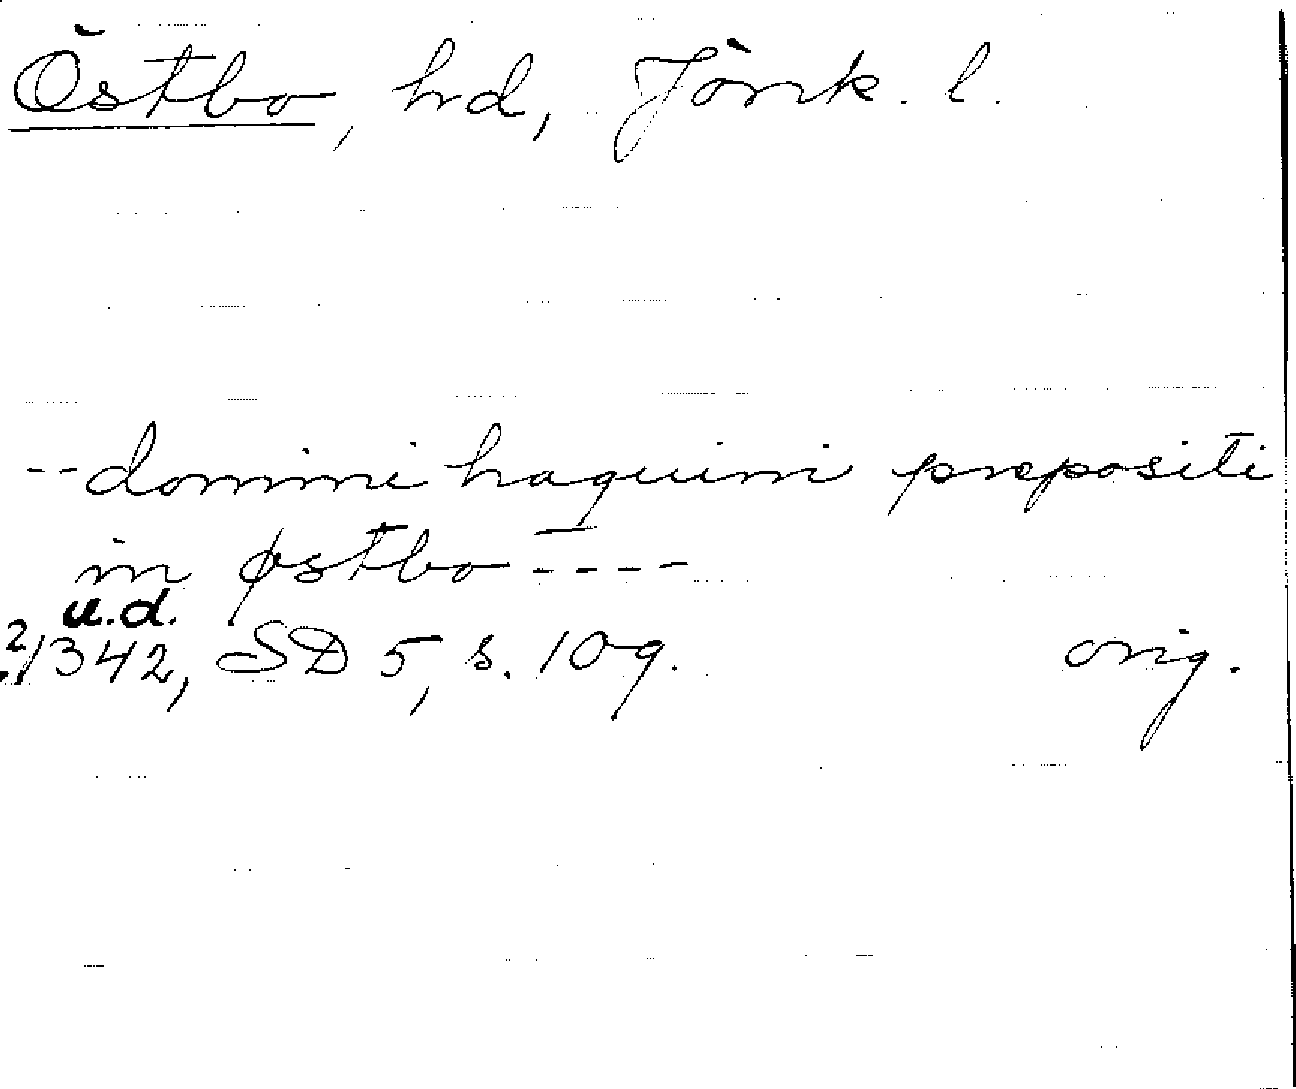 Östbo, hd, Jönk. l.
--domini haquini prepositi
in østbo----
u.d.
2/1342, SD 5, s. 109. orig.